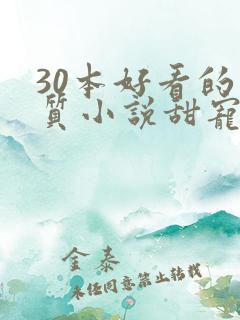 30本好看的
质小说甜宠
金泰
未经同意禁止转载